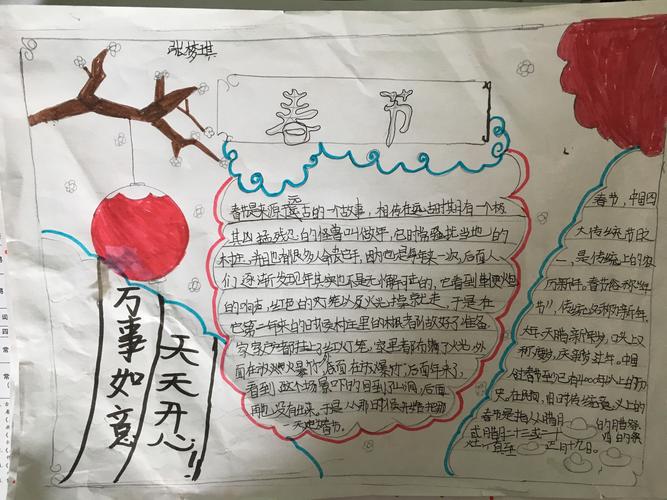 张梦琪
春节
春节是来原于远古的一个故事,相传在远古时期有一个极
其凶猛残忍的怪兽叫做年,它时常骚扰当地人的
村庄,并且也有很多人命丧它手,因为也是年年来一次,后面人
们逐渐发现年其实也不是无懈可击的,它看到鞭炮
的响声,红色的灯笼以及火光才会害怕走,于是在
它第二年来的时候村庄里的
家家户户都挂上了红灯笼,家里都布满了火光,外
面在放烟火爆竹,后面年来了,
看到这个场景吓的回到了山洞,后面
再也没有出来。于是从那时候开始
万事如意
天天开心!
春节,中国四
大传统节日之
一,是传统上的农
历新年。春节俗称“年
节”,传统名称为新年、
大年、天腊、新岁,口头上又
称度岁、庆新岁、过年。中国
人过春节至少已有4000年以上的历
史,在民间,旧时传统意义上的
春节是指从腊月的腊祭
或腊月二十三或二十四的祭
灶,一直到正月十九日。